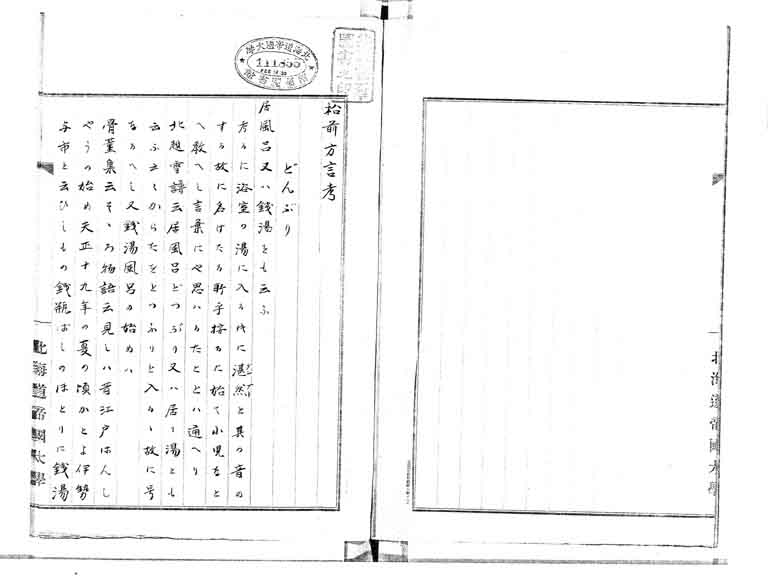 松前方言考
どんぶり
居風呂又ハ銭湯をも云ふ
考るに浴室の湯に入る時に湛然と其の音の
する故に名けたる
へ教へし言葉にや思ハるたととハ通へり
北越雪譜云居風呂どつぶり又ハ居り湯とも
云ふ云々からたをとつふりと入るゝ故に号
なるへし又銭湯風呂の始めハ
骨董集云そゝろ物語云見しハ昔江戸はんし
やうの始め天正十九年の夏の頃かとよ伊勢
与市と云ひしもの銭瓶はしのほとりに銭湯
北海道帝國大學
北海道帝國大學
北海道帝國大學
111855